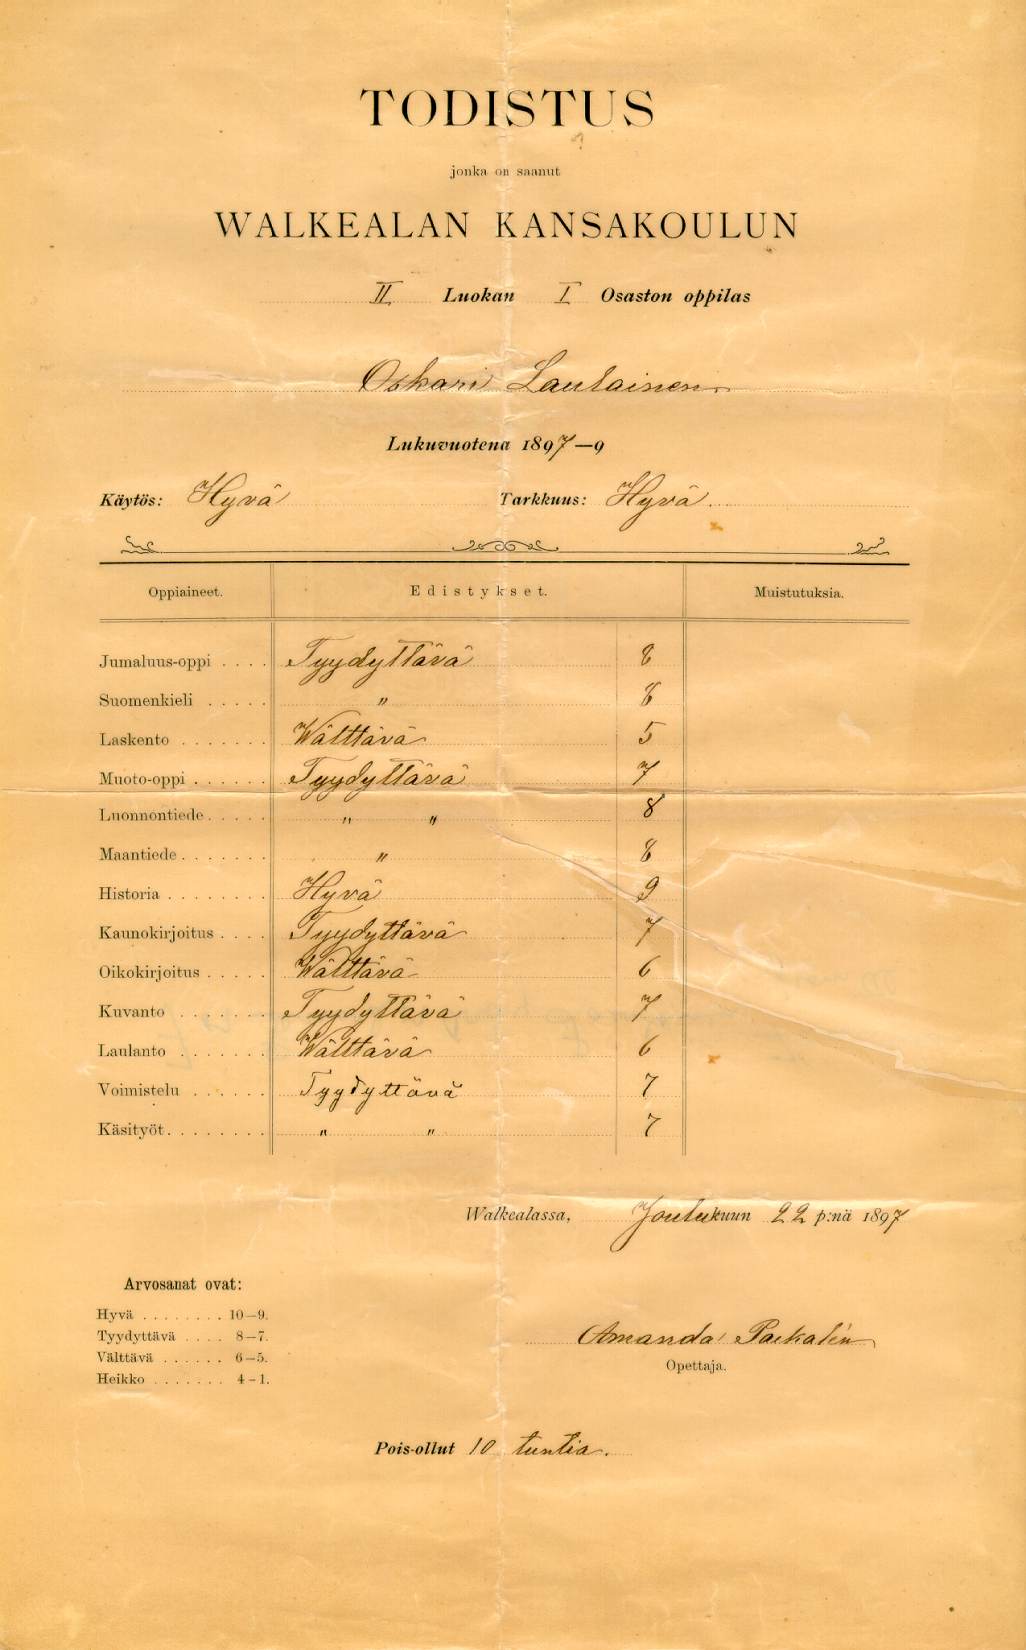 TODISTUS
jonka on saanut
WALKEALAN KANSAKOULUN
II Luokan I Osaston oppilas
Oskari Laulainen
Lukuvuotena 1897—9
Käytös: Hyvä Tarkkuus: Hyvä
Oppiaineet. Edistykset. Muistutuksia.
Jumaluus-oppi . . . . Tyydyttävä 8
Suomenkieli . . . . . " 8
Laskento . . . . . . . Wälttävä 5
Muoto-oppi . . . . . . Tyydyttävä 7
Luonnontiede . . . . . " " 8
Maantiede . . . . . . . " 8
Historia . . . . . . . . Hyvä 9
Kaunokirjoitus . . . . Tyydyttävä 7
Oikokirjoitus . . . . . Wälttävä 6
Kuvanto . . . . . . . Tyydyttävä 7
Laulanto . . . . . . . Wälttävä 6
Voimistelu . . . . . . Tyydyttävä 7
Käsityöt . . . . . . . . " " 7
Walkealassa, Joulukuun 22 p:nä 1897
Arvosanat ovat:
Hyvä . . . . . . . . 10—9.
Tyydyttävä . . . . 8—7.
Välttävä . . . . . . 6—5.
Heikko . . . . . . . 4—1.
Amanda
Opettaja.
Pois-ollut 10 tuntia.